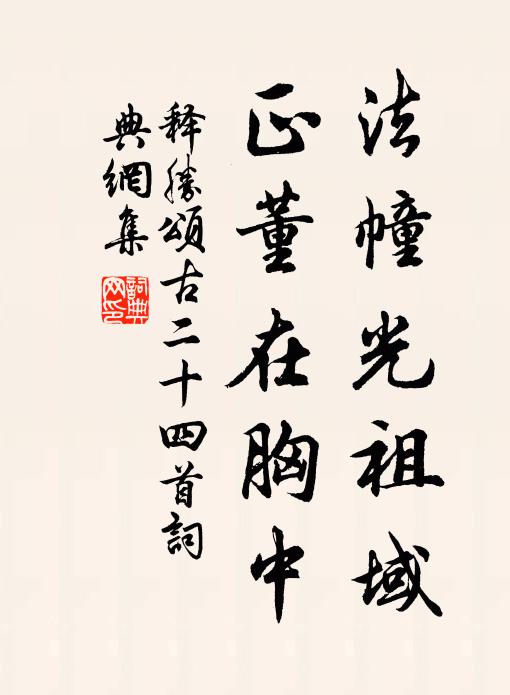 法幢光祖域
正董在胸中
释勝頌古二十四首詞
典網集
詞典网印